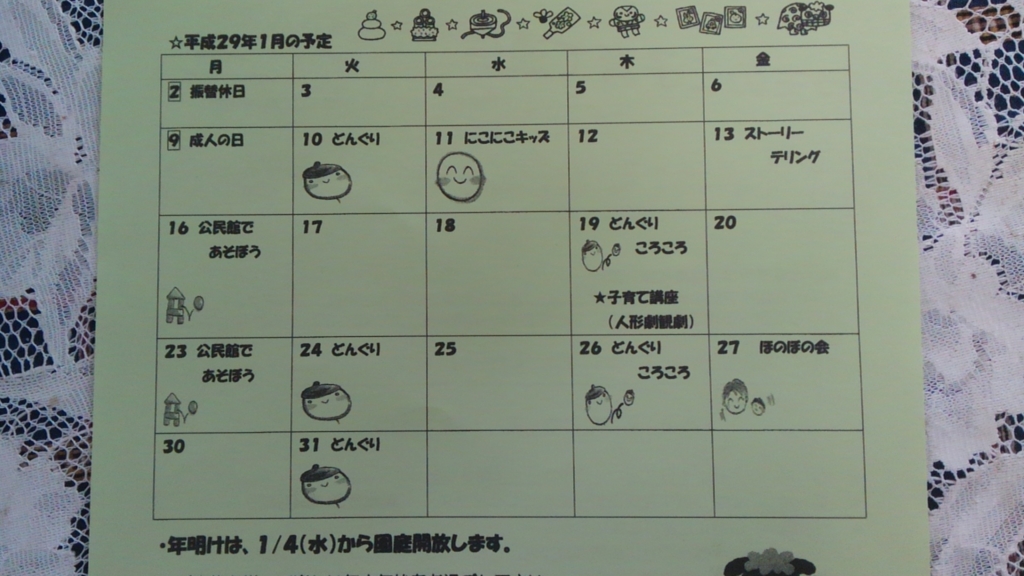 ☆平成29年1月の予定
月 火 水 木 金
2 振替休日 3 4 5 6
9 成人の日 10 どんぐり 11 にこにこキッズ 12 13 ストーリー
テリング
16 公民館で 17 18 19 どんぐり 20
あそぼう ころころ
★子育て講座
(人形劇観劇)
23 公民館で 24 どんぐり 25 26 どんぐり 27 ほのぼの会
あそぼう ころころ
30 31 どんぐり
・年明けは、1/4(水)から園庭開放します。